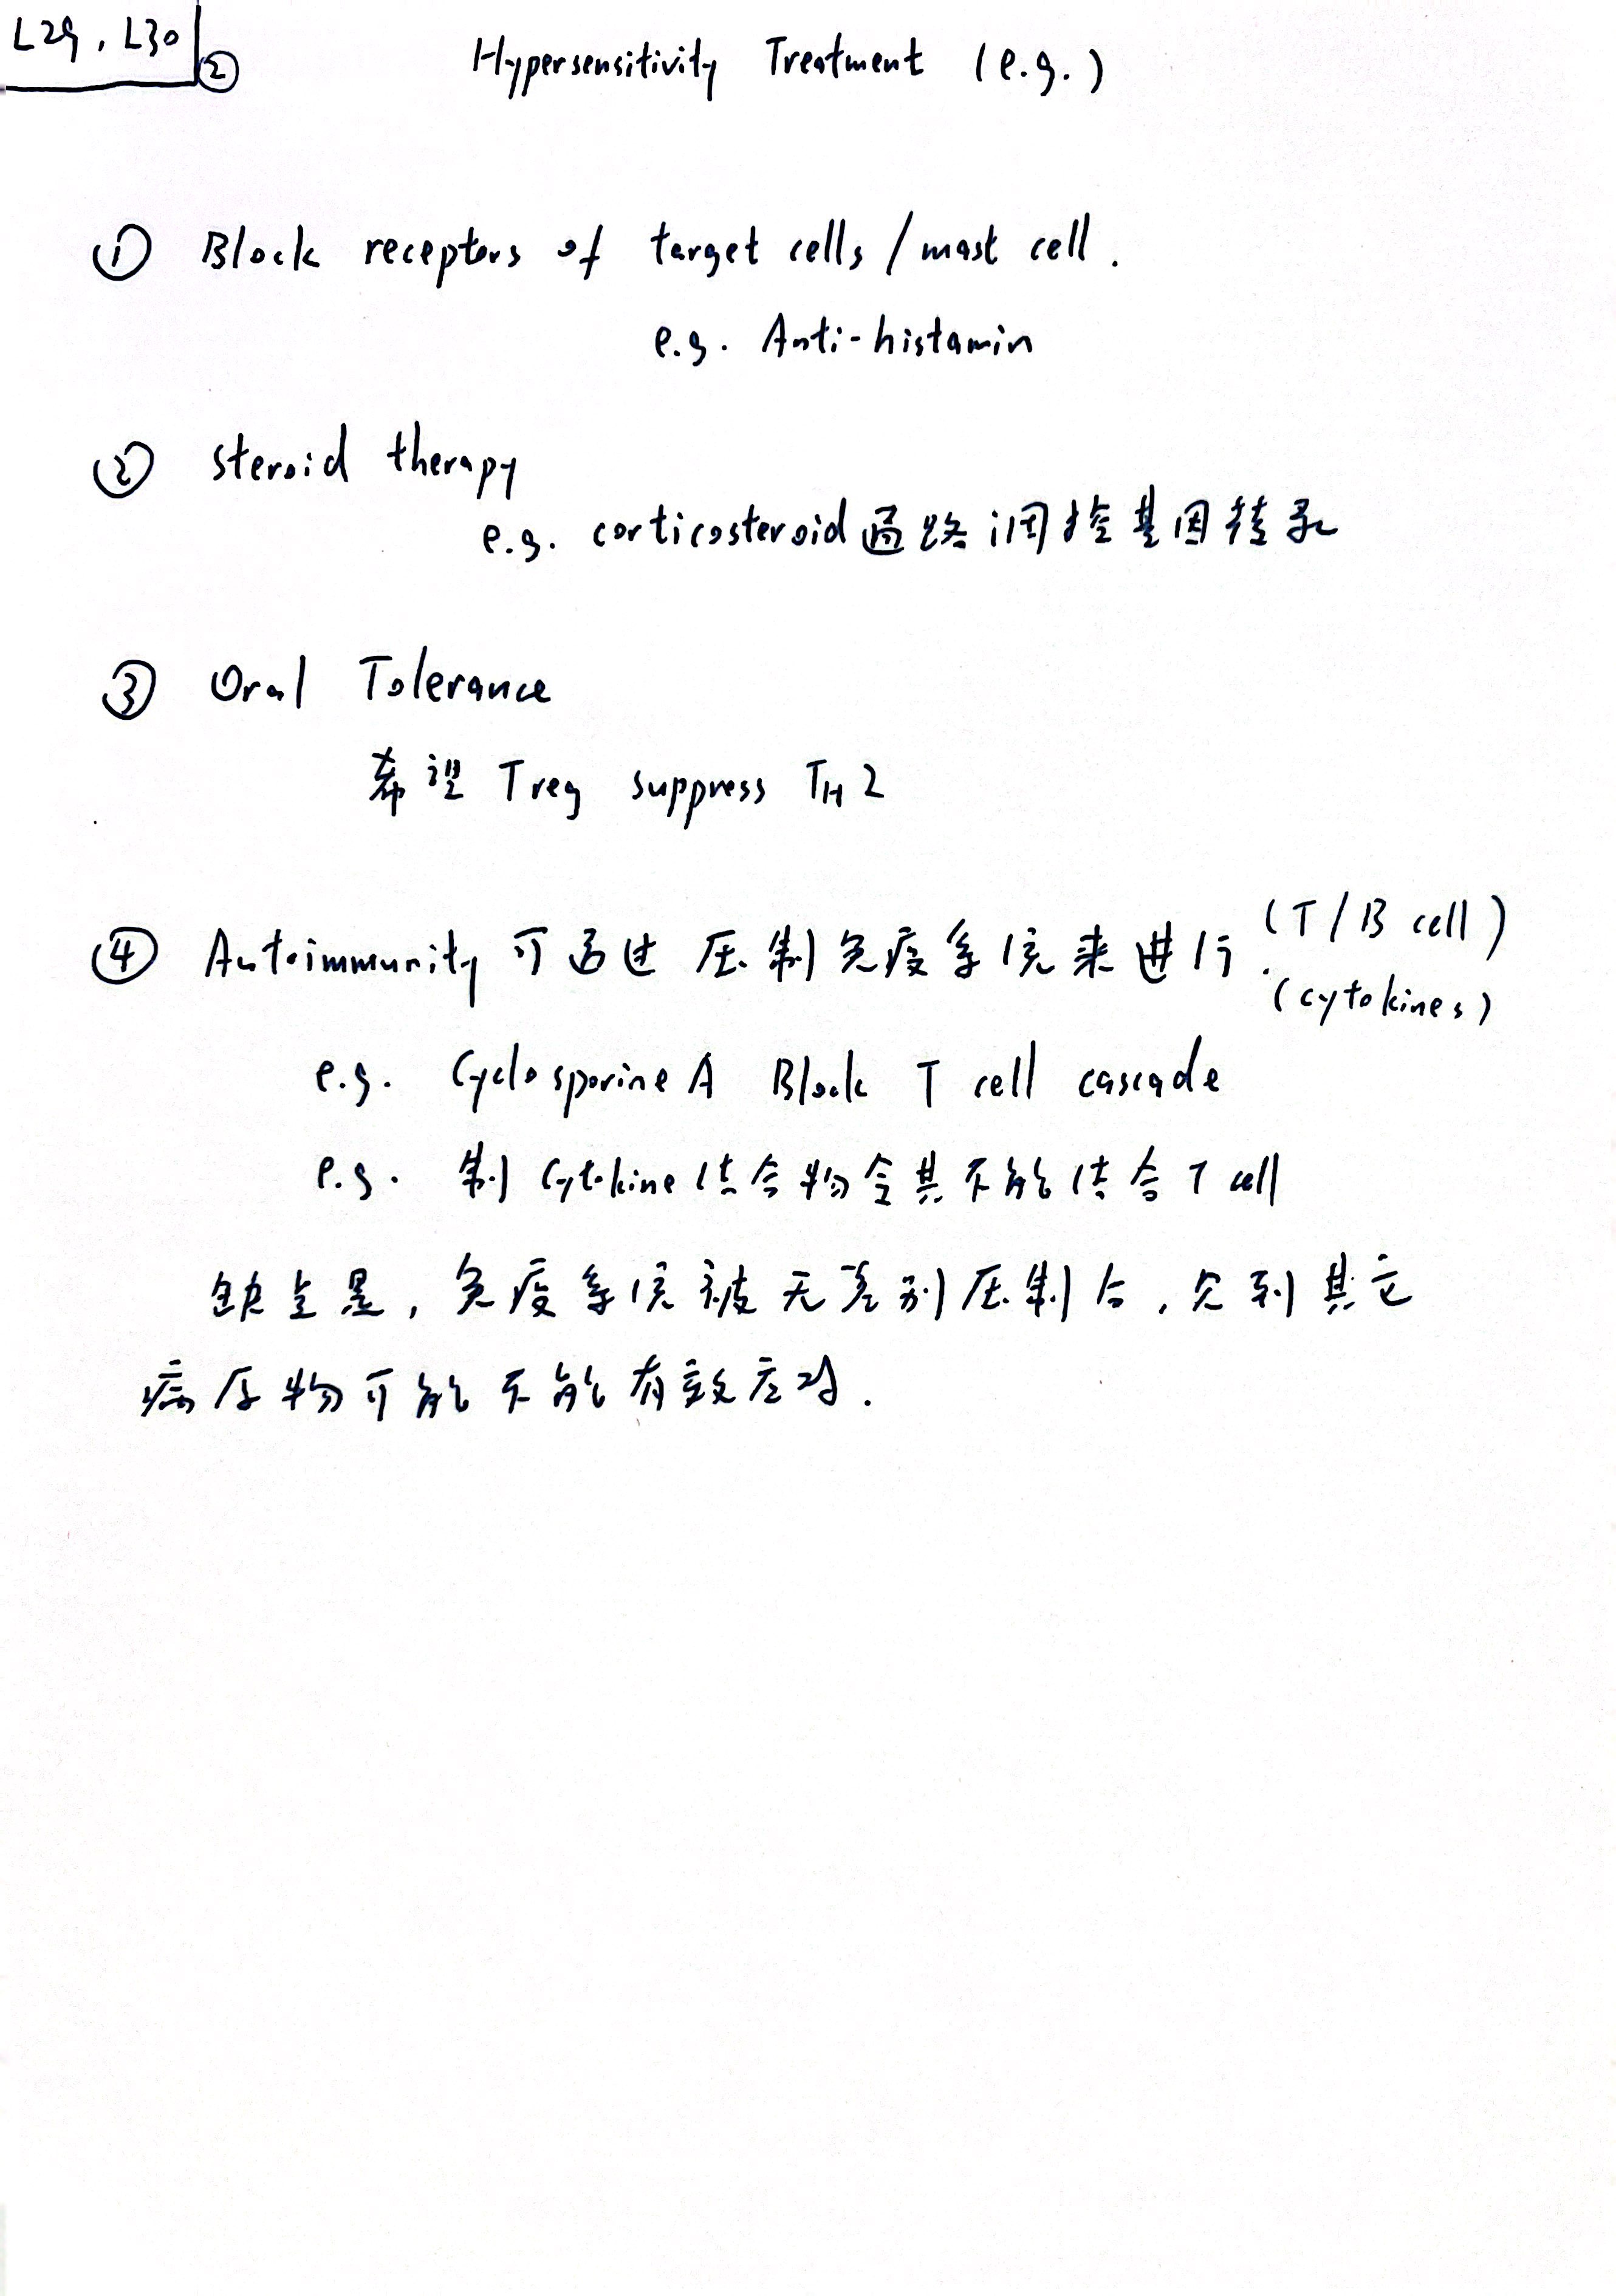 L29, L30 ②
Hypersensitivity Treatment (e.g.)
① Block receptors of target cells / mast cell.
e.g. Anti-histamin
② steroid therapy
e.g. corticosteroid 通路调控基因转录
③ Oral Tolerance
希望 Treg suppress TH2
④ Autoimmunity 可通过压制免疫系统来进行. (T/B cell)
(cytokines)
e.g. Cyclosporine A Block T cell cascade
e.g. 制 Cytokine 结合物令其不能结合 T cell
缺点是, 免疫系统被无差别压制后, 见到其它
病原物可能不能有效应对.